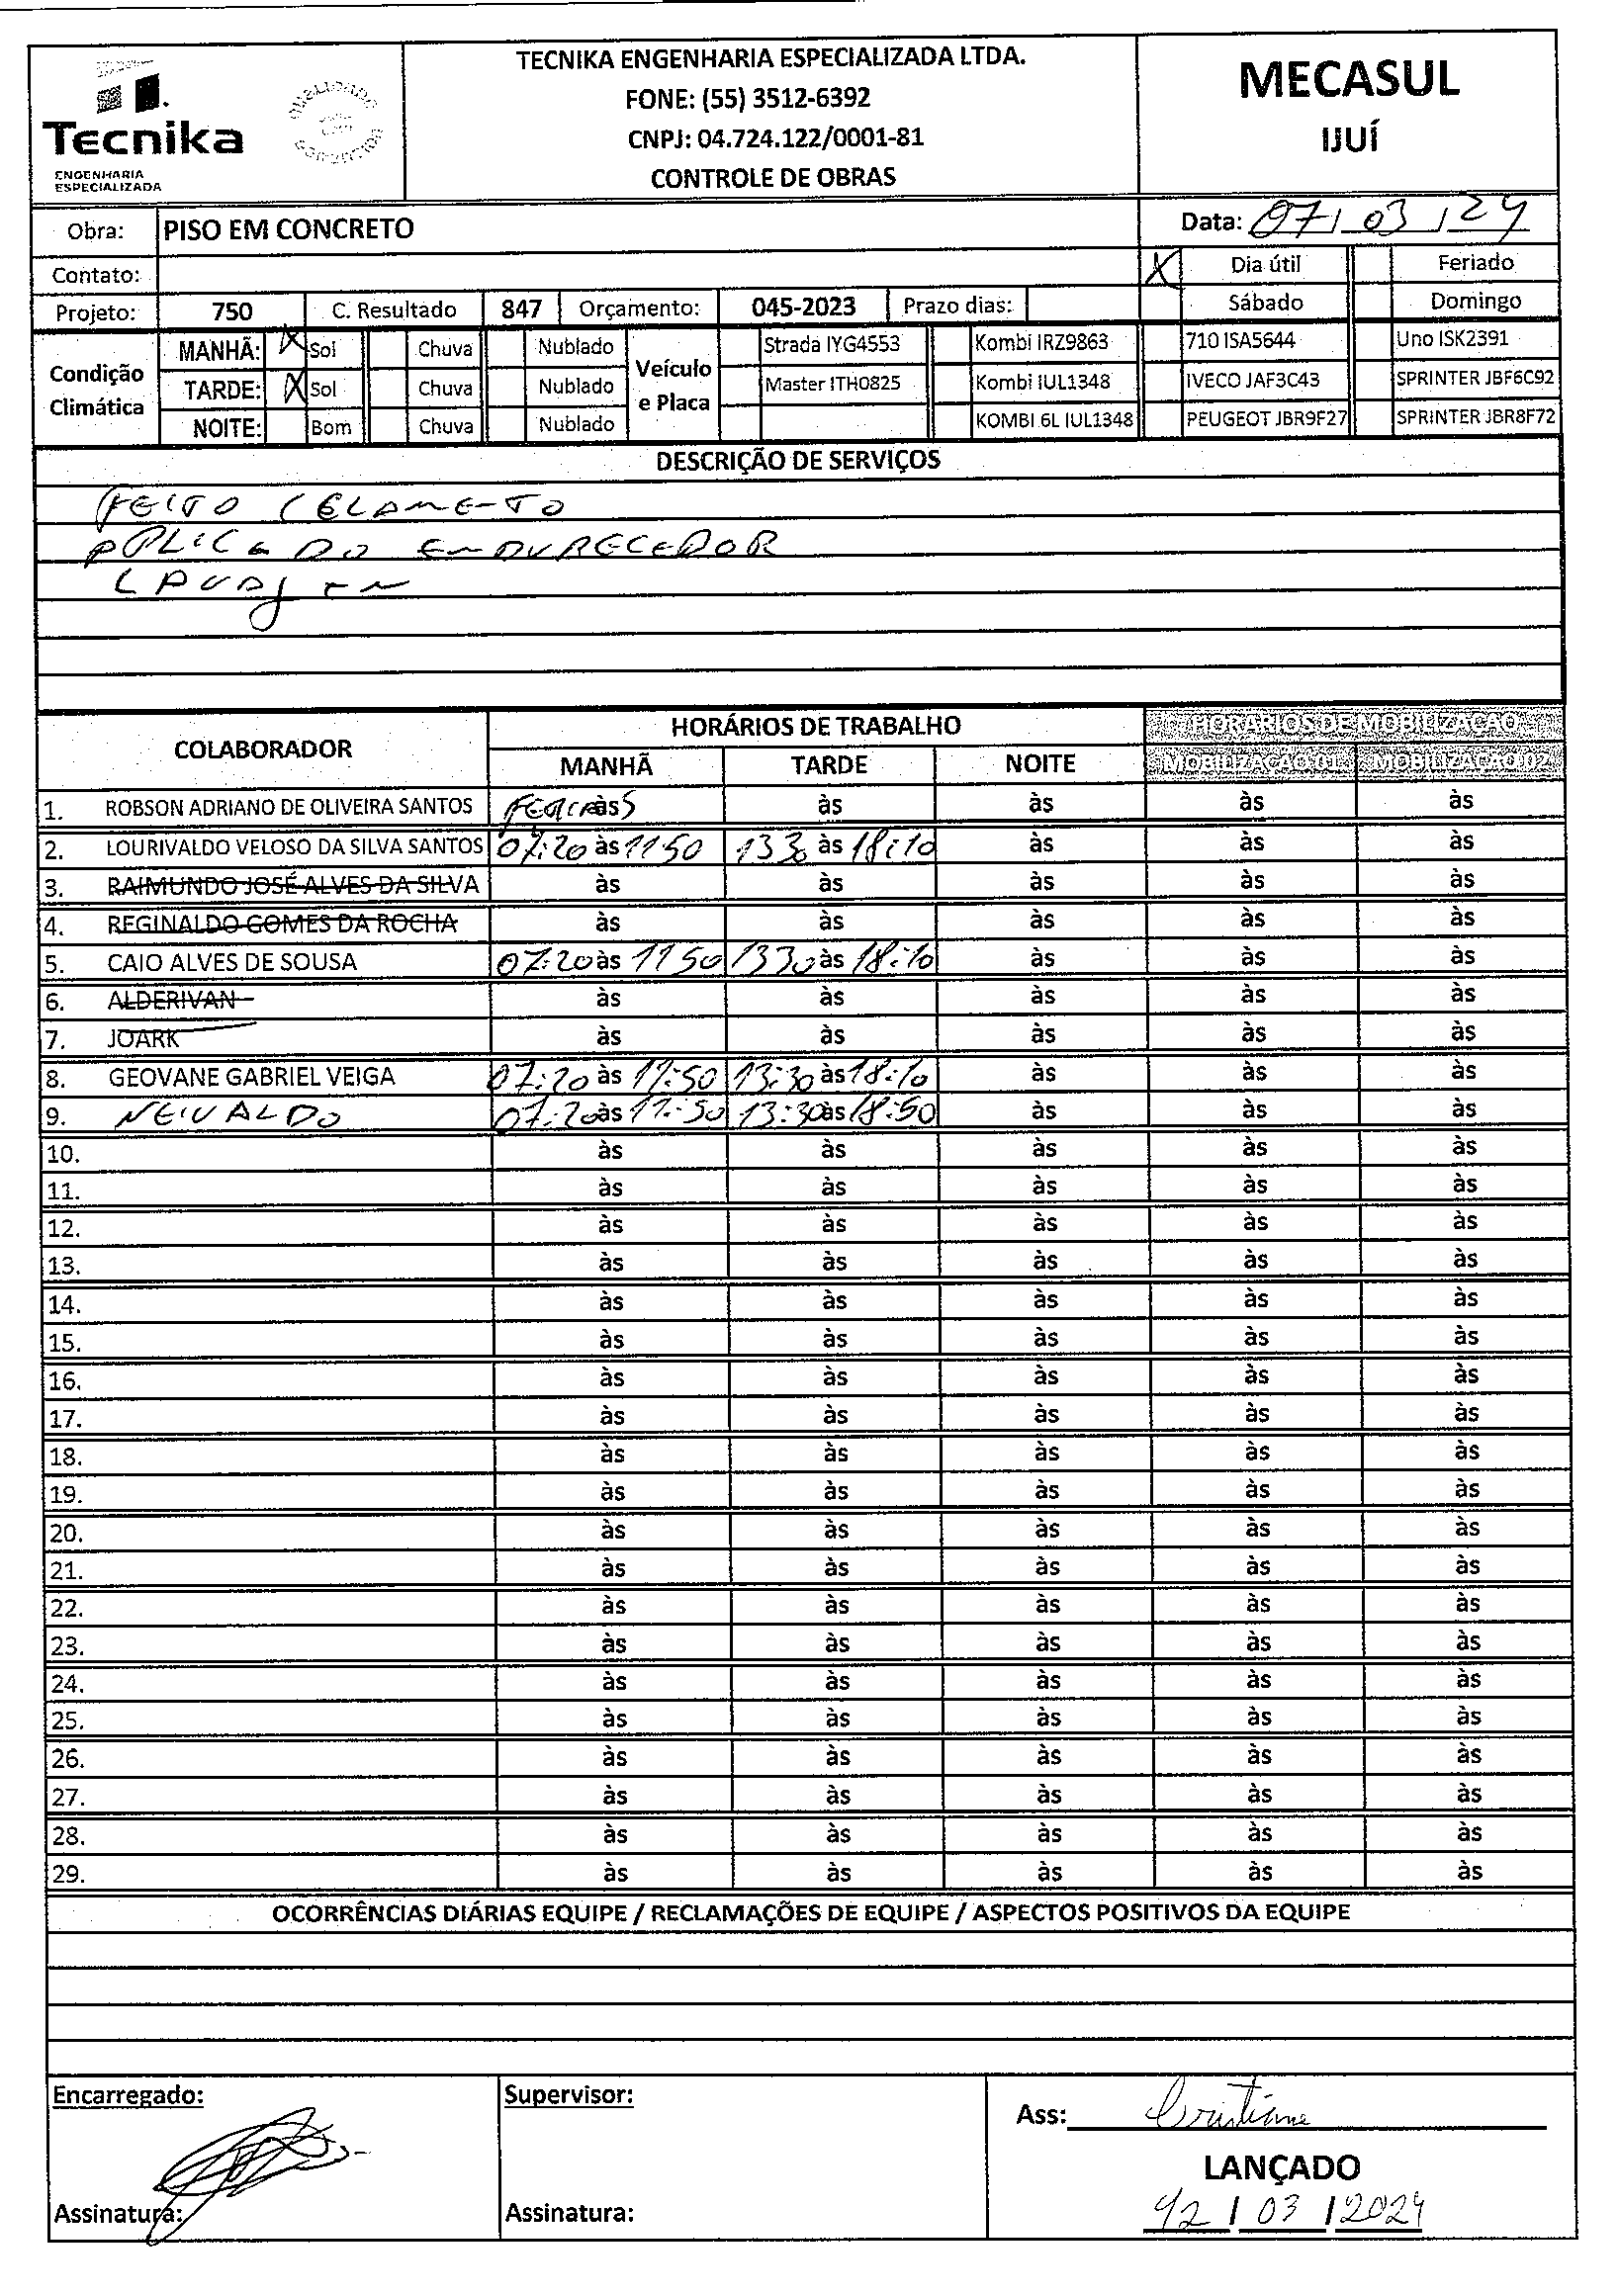 Tecnika
ENGENHARIA
ESPECIALIZADA
TECNIKA ENGENHARIA ESPECIALIZADA LTDA.
FONE: (55) 3512-6392
CNPJ: 04.724.122/0001-81
CONTROLE DE OBRAS
MECASUL
IJUÍ
Obra: PISO EM CONCRETO
Data: 07/03/24
Contato:
X Dia útil Feriado
Projeto: 750 C. Resultado 847 Orçamento: 045-2023 Prazo dias: Sábado Domingo
Condição Climática
MANHÃ: X Sol Chuva Nublado
TARDE: X Sol Chuva Nublado
NOITE: Bom Chuva Nublado
Veículo e Placa
Strada IYG4553 Kombi IRZ9863 710 ISA5644 Uno ISK2391
Master ITH0825 Kombi IUL1348 IVECO JAF3C43 SPRINTER JBF6C92
KOMBI 6L IUL1348 PEUGEOT JBR9F27 SPRINTER JBR8F72
DESCRIÇÃO DE SERVIÇOS
FEITO CELAMENTO
APLICADO ENDURECEDOR
LAVAJEN
COLABORADOR HORÁRIOS DE TRABALHO HORÁRIOS DE MOBILIZAÇÃO
MANHÃ TARDE NOITE MOBILIZAÇÃO 01 MOBILIZAÇÃO 02
1. ROBSON ADRIANO DE OLIVEIRA SANTOS às às às às às
2. LOURIVALDO VELOSO DA SILVA SANTOS 07:20 às 1150 1330 às 18:10 às às às
3. RAIMUNDO JOSÉ ALVES DA SILVA às às às às às
4. REGINALDO GOMES DA ROCHA às às às às às
5. CAIO ALVES DE SOUSA 07:20 às 1150 1330 às 18:10 às às às
6. ALDERIVAN às às às às às
7. JOARK às às às às às
8. GEOVANE GABRIEL VEIGA 07:20 às 11:50 13:30 às 18:10 às às às
9. NEIVALDO 07:20 às 11:50 13:30 às 18:50 às às às
10. às às às às às
11. às às às às às
12. às às às às às
13. às às às às às
14. às às às às às
15. às às às às às
16. às às às às às
17. às às às às às
18. às às às às às
19. às às às às às
20. às às às às às
21. às às às às às
22. às às às às às
23. às às às às às
24. às às às às às
25. às às às às às
26. às às às às às
27. às às às às às
28. às às às às às
29. às às às às às
OCORRÊNCIAS DIÁRIAS EQUIPE / RECLAMAÇÕES DE EQUIPE / ASPECTOS POSITIVOS DA EQUIPE
Encarregado:
Assinatura:
Supervisor:
Assinatura:
Ass: Cristiane
LANÇADO
12/03/2024